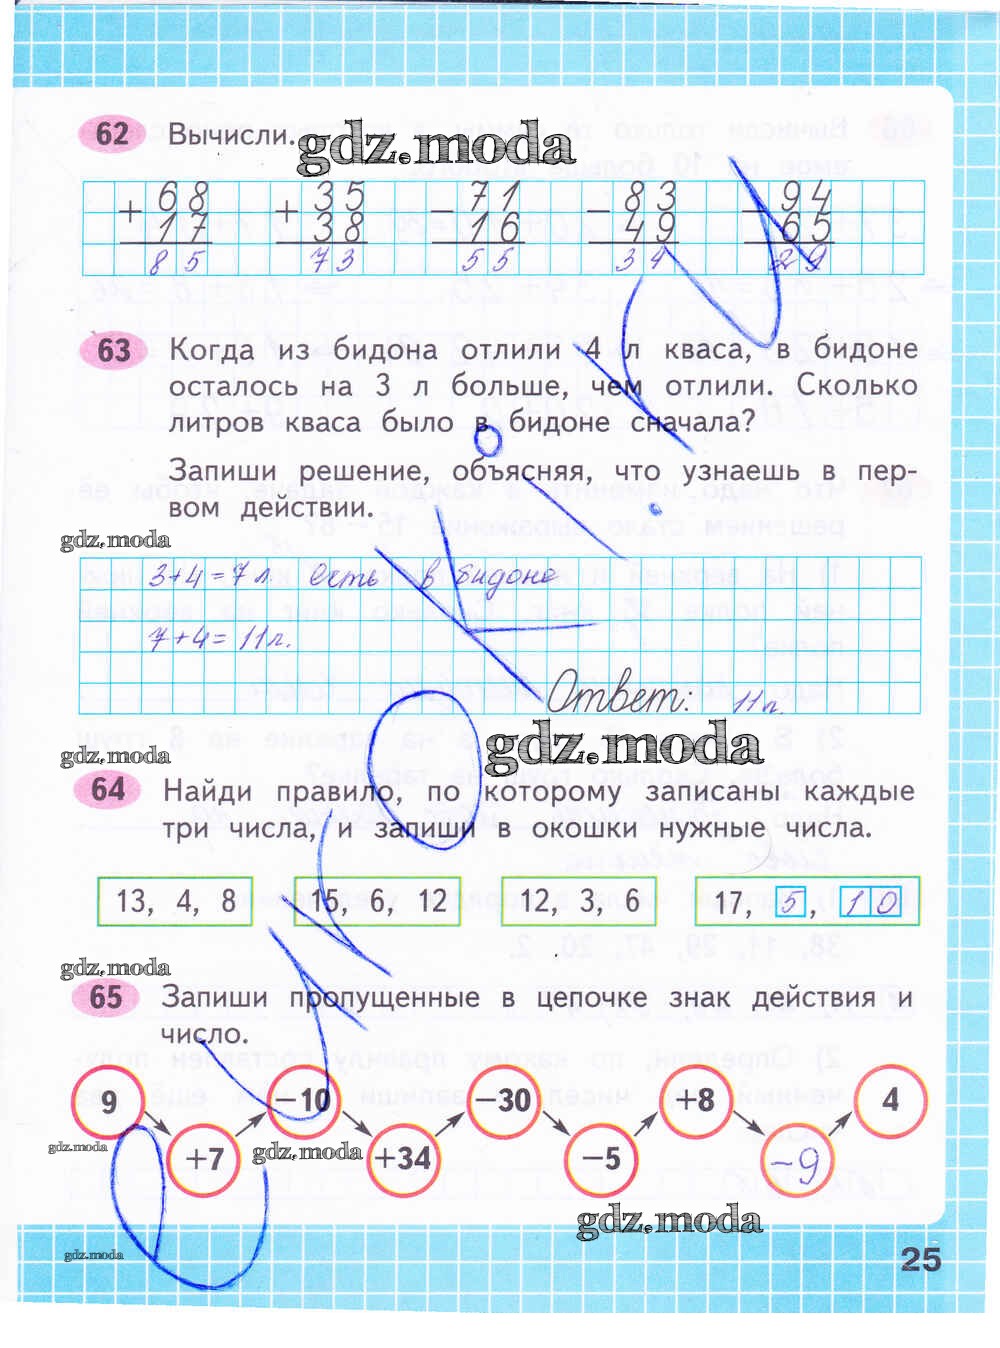 62 Вычисли.
gdz.moda
+ 68 + 35 - 71 - 83 - 94
17 38 16 49 65
85 73 55 34 29
63 Когда из бидона отлили 4 л кваса, в бидоне
осталось на 3 л больше, чем отлили. Сколько
литров кваса было в бидоне сначала?
Запиши решение, объясняя, что узнаешь в пер-
вом действии.
gdz.moda
3+4=7 л. есть в бидоне
7+4=11л.
Ответ: 11л.
gdz.moda
gdz.moda
64 Найди правило, по которому записаны каждые
три числа, и запиши в окошки нужные числа.
13, 4, 8 15, 6, 12 12, 3, 6 17, 5, 10
gdz.moda
65 Запиши пропущенные в цепочке знак действия и
число.
9 −10 −30 +8 4
+7 +34 −5 −9
gdz.moda
gdz.moda
gdz.moda
gdz.moda
25